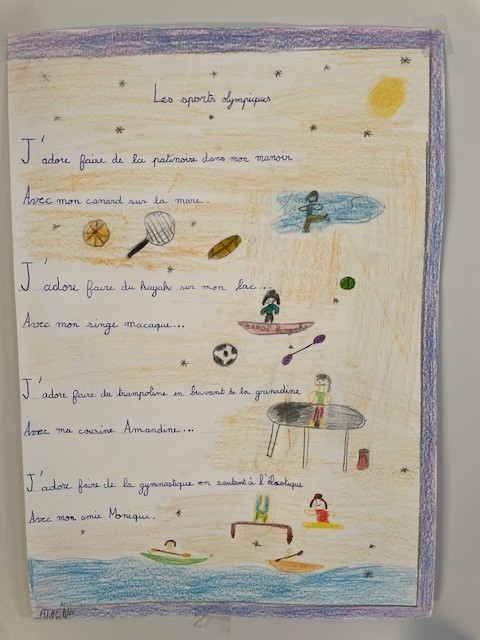 Les sports olympiques
J'adore faire de la patinoire dans mon manoir
Avec mon canard sur la mare.
J'adore faire du kayak sur mon lac...
Avec mon singe macaque...
J'adore faire du trampoline en buvant de la grenadine
Avec ma cousine Amandine...
J'adore faire de la gymnastique en sautant à l'élastique
Avec mon amie Monique.